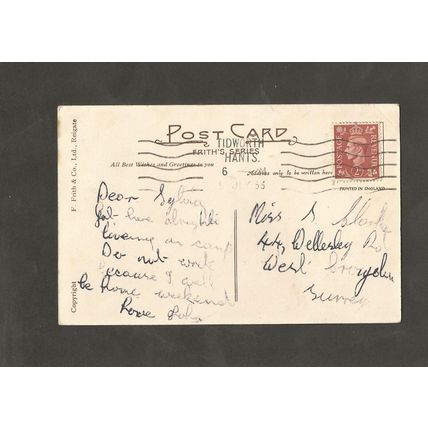 POST CARD
FRITH'S SERIES
TIDWORTH
HANTS.
6
All Best Wishes and Greetings to you
Address only to be written here
PRINTED IN ENGLAND
POSTAGE
REVENUE
F. Frith & Co., Ltd., Reigate
Copyright
Dear Sylvia
Got here alright
living in camp
Do not write
because I will
be home weekend
Love
Miss S
44, Wellesley Rd
West Croydon
Surrey